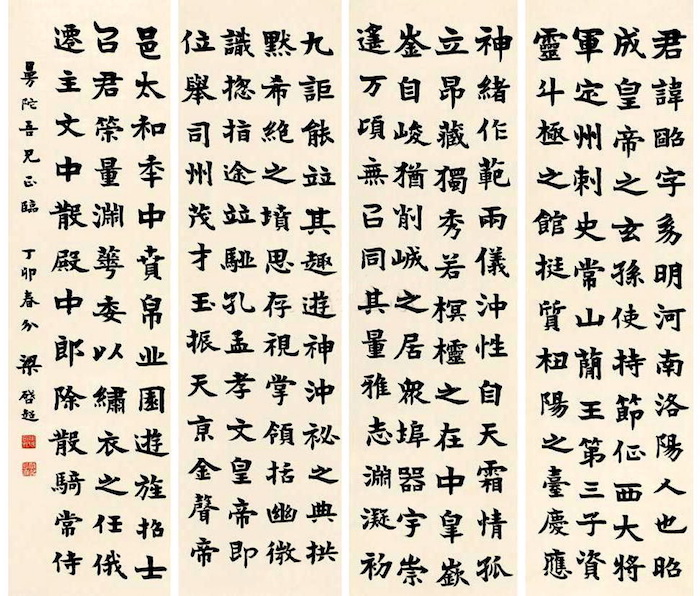 君諱昭字幼明河南洛陽人也昭
成皇帝之玄孫使持節征西大將
軍定州刺史常山蕳王第三子資
靈斗極之館挺質杻陽之臺慶應
神緒作範兩儀沖性自天霜情孤
立昂藏獨秀若榠櫨之在中皐嶽
崟自峻猶削峸之居衆埠器宇崇
邃万頃無以同其量雅志淵凝初
九詎能竝其趣遊神沖祕之典拱
默希絶之墳思存視掌領括幽微
識揔指途竝駈孔孟孝文皇帝即
位舉司州茂才玉振天京金聲帝
邑太和年中賁帛丘園遊旌招士
以君榮量淵蕚委以繡衣之任俄
遷主文中散殿中郎除散騎常侍
曼陀吾兄正臨 丁卯春分 梁啓超